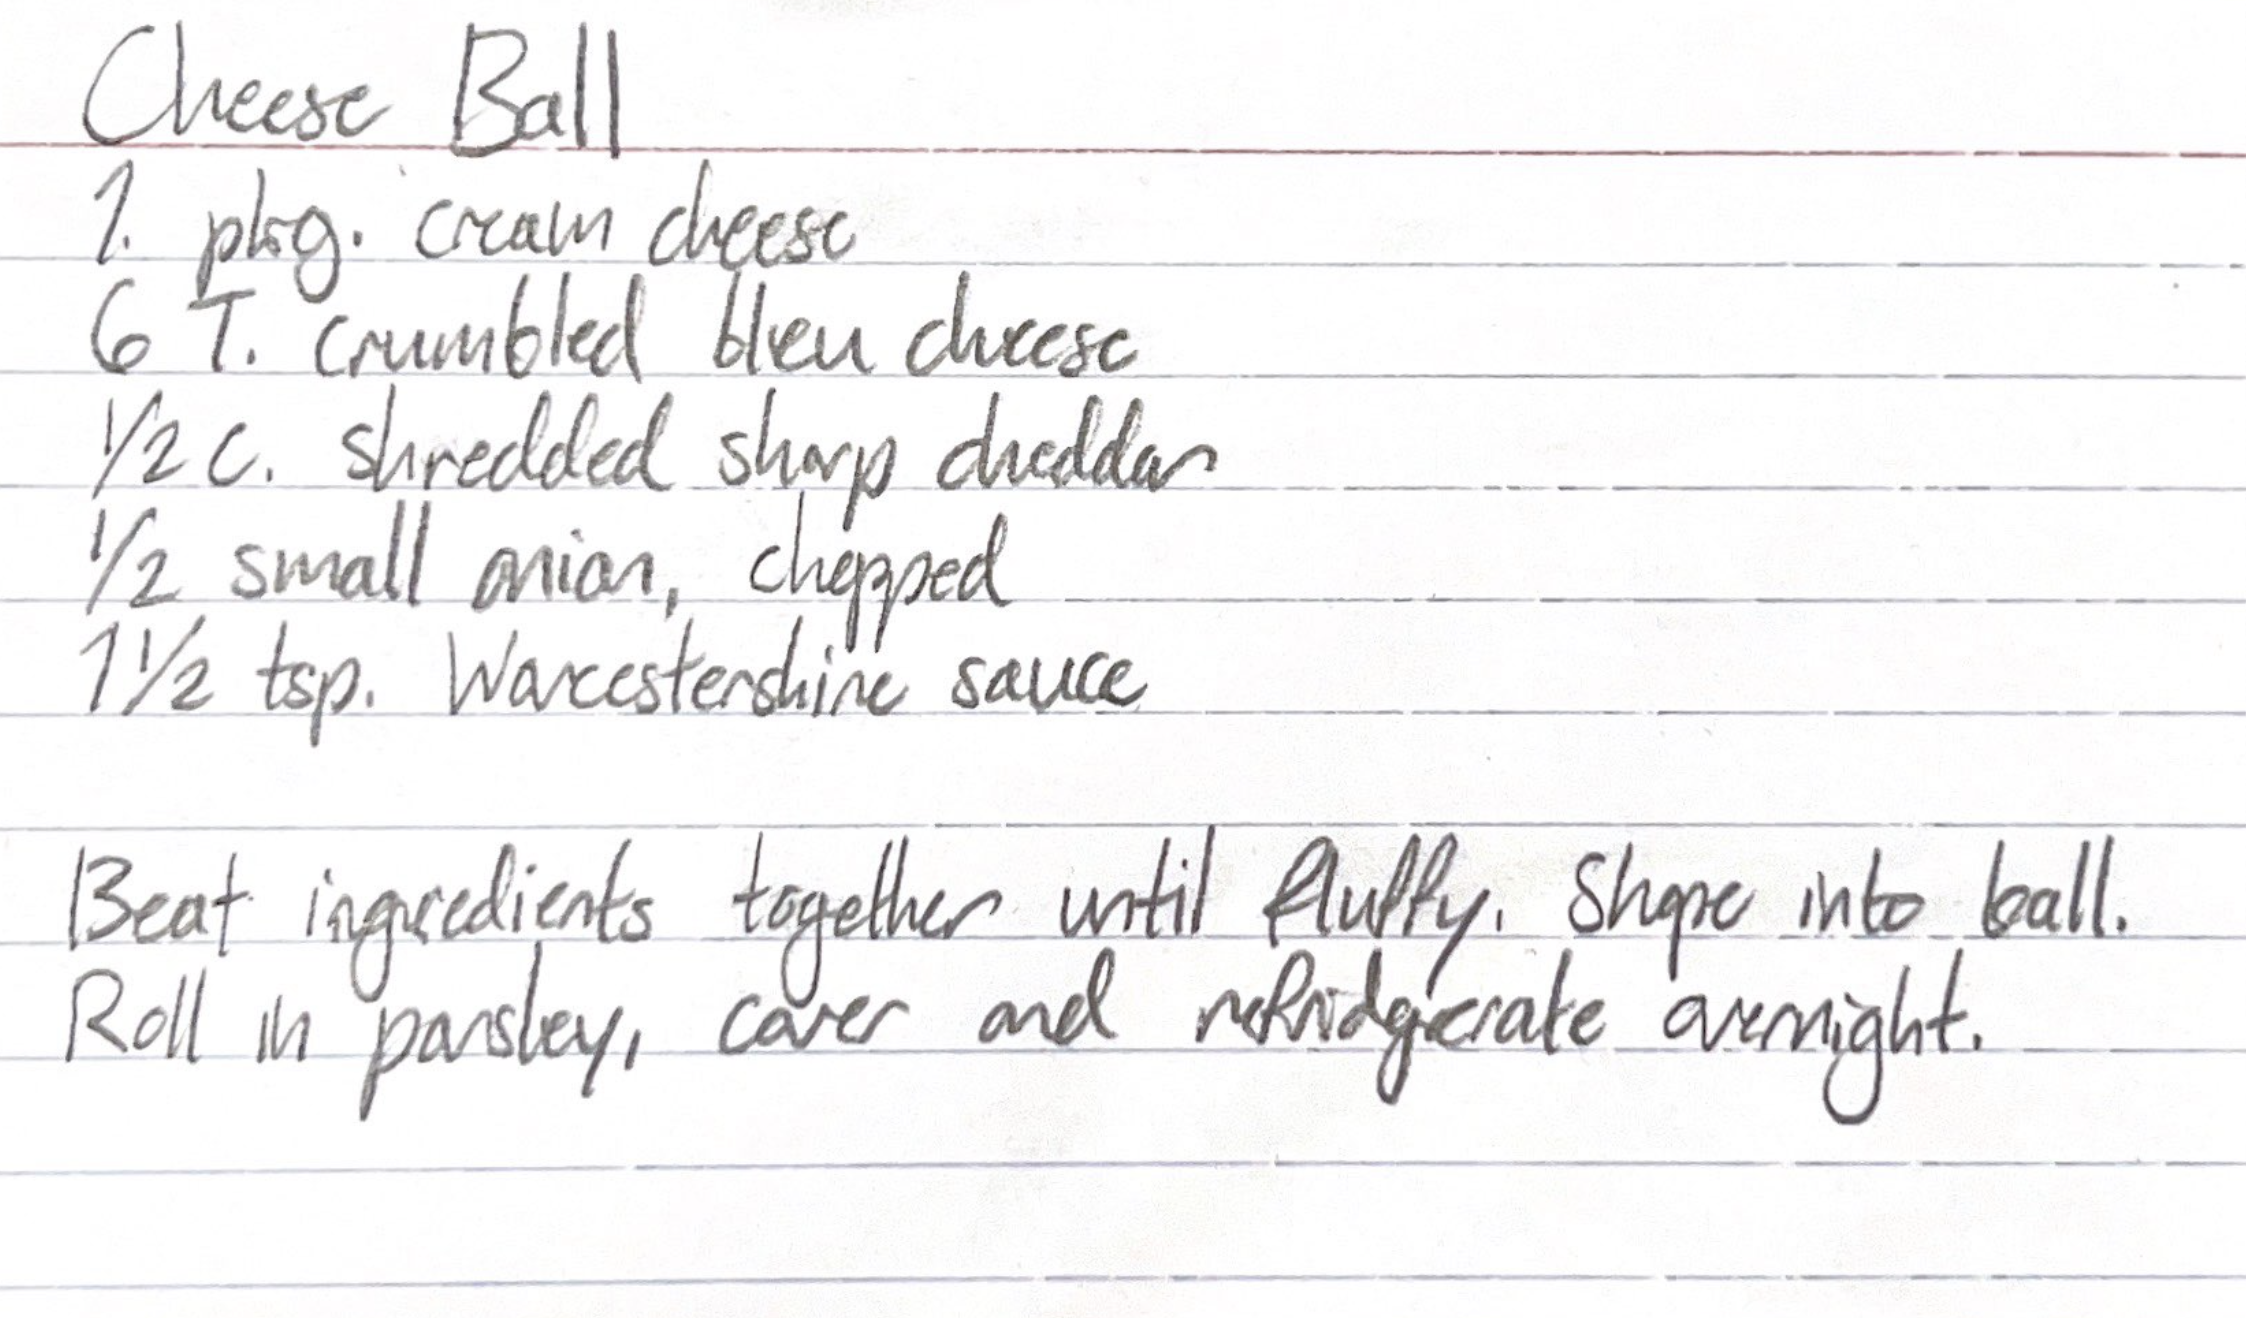 Cheese Ball
1. pkg. cream cheese
6 T. crumbled bleu cheese
1/2 c. shredded sharp cheddar
1/2 small onion, chopped
1 1/2 tsp. Worcestershire sauce
Beat ingredients together until fluffy. Shape into ball.
Roll in parsley, cover and refridgerate overnight.